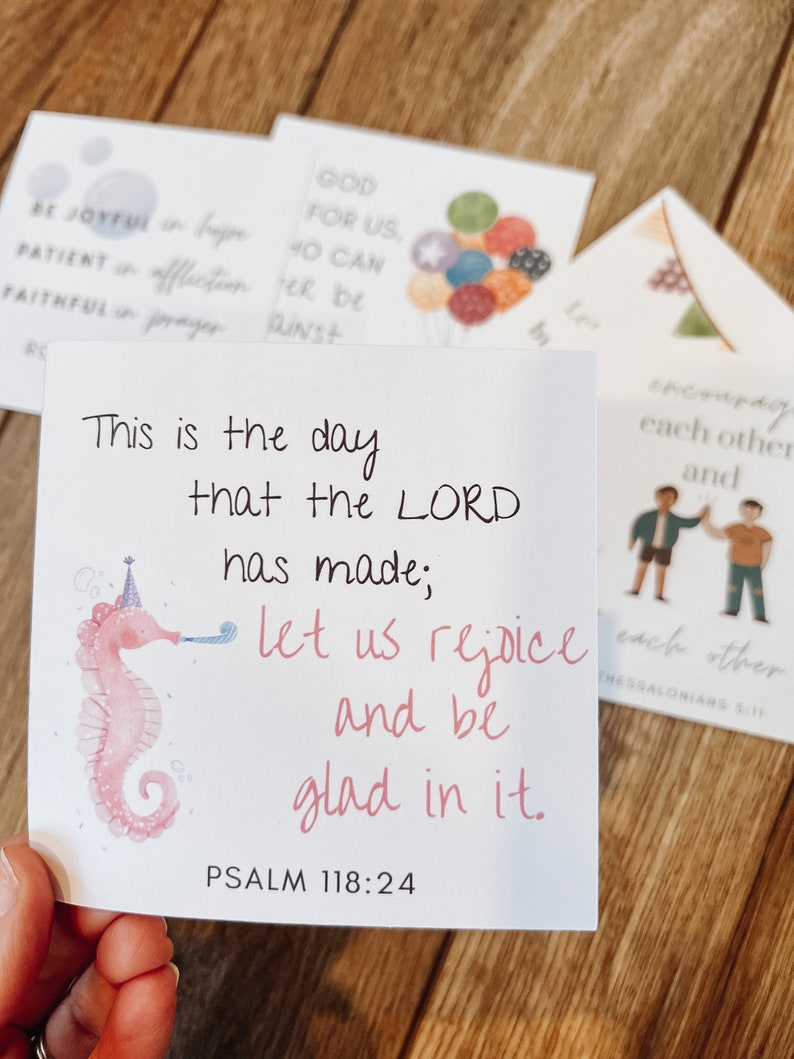 BE JOYFUL in hope
PATIENT in affliction
FAITHFUL in prayer
GOD
FOR US,
CAN
BE
This is the day
that the LORD
has made;
let us rejoice
and be
glad in it.
PSALM 118:24
encourag
each other
and
each other
THESSALONIANS 5:11